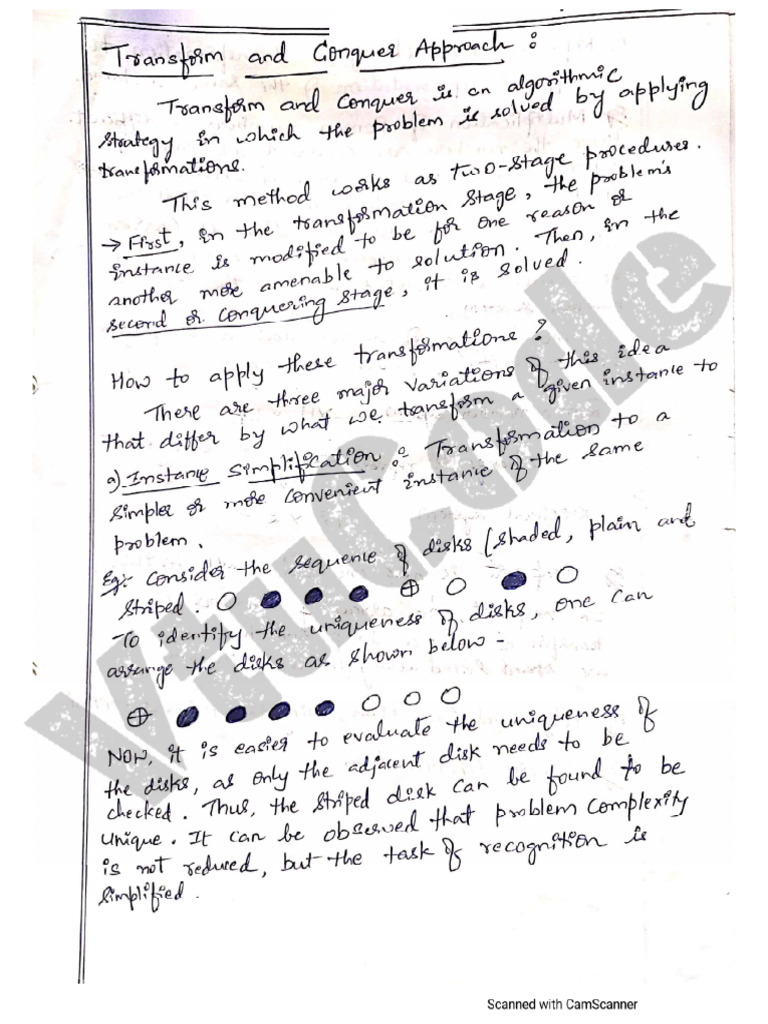 Transform and Conquer Approach :
Transform and Conquer is an algorithmic
strategy in which the problem is solved by applying
transformations.
This method works as two-stage procedures.
→ First, in the transformation stage, the problem's
instance is modified to be for one reason or
another more amenable to solution. Then, in the
second or conquering stage, it is solved.
How to apply these transformations ?
There are three major variations of this idea
that differ by what we transform a given instance to
a) Instance Simplification : Transformation to a
simpler or more convenient instance of the same
problem.
Eg:- Consider the sequence of disks (shaded, plain and
striped.
To identify the uniqueness of disks, one can
arrange the disks as shown below -
Now, it is easier to evaluate the uniqueness of
the disks, as only the adjacent disk needs to be
checked. Thus, the striped disk can be found to be
unique. It can be observed that problem complexity
is not reduced, but the task of recognition is
simplified.
VtuCode
Scanned with CamScanner